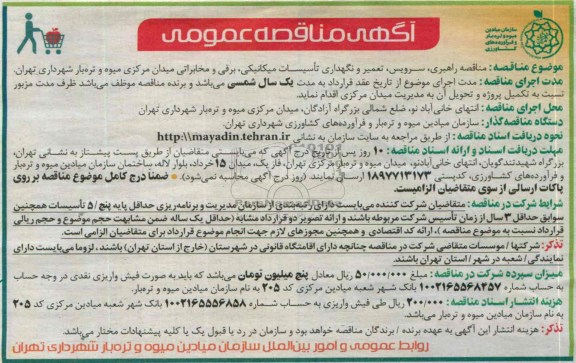 آگهی مناقصه عمومی
سازمان میادین
میوه و تره‌بار
و فرآورده‌های
کشاورزی
موضوع مناقصه: مناقصه راهبری، سرویس، تعمیر و نگهداری تأسیسات میکانیکی، برقی و مخابراتی میدان مرکزی میوه و تره‌بار شهرداری تهران.
مدت اجرای مناقصه: مدت اجرای موضوع از تاریخ عقد قرارداد به مدت یک سال شمسی می‌باشد و برنده مناقصه موظف می‌باشد ظرف مدت مزبور
نسبت به تکمیل پروژه و تحویل آن به مدیریت میدان مرکزی اقدام نماید.
محل اجرای مناقصه: انتهای خانی آباد نو، ضلع شمالی بزرگراه آزادگان، میدان مرکزی میوه و تره‌بار شهرداری تهران
دستگاه مناقصه‌گذار: سازمان میادین میوه و تره‌بار و فرآورده‌های کشاورزی شهرداری تهران.
نحوه دریافت اسناد مناقصه: از طریق مراجعه به سایت سازمان به نشانی http:\\mayadin.tehran.ir
مهلت دریافت اسناد و ارائه اسناد مناقصه: ۱۰ روز پس از تاریخ درج آگهی که می‌بایستی متقاضیان از طریق پست پیشتاز به نشانی تهران،
بزرگراه شهیدتندگویان، انتهای خانی آبادنو، میدان میوه و تره‌بار مرکزی تهران، فاز یک، میدان ۱۵ خرداد، بلوار لاله، ساختمان سازمان میادین میوه و تره‌بار
و فرآورده‌های کشاورزی، کدپستی ۱۸۹۷۷۱۳۱۷۳ ارسال نمایند. (روز درج آگهی محاسبه نمی‌شود). * ضمنا درج کامل موضوع مناقصه بر روی
پاکات ارسالی از سوی متقاضیان الزامیست.
شرایط شرکت در مناقصه: متقاضیان شرکت کننده می‌بایست دارای رتبه‌بندی از سازمان مدیریت و برنامه‌ریزی حداقل پایه پنج/ ۵ تأسیسات همچنین
سوابق حداقل ۳ سال از زمان تأسیس شرکت مربوطه باشند و ارائه تصویر دو قرارداد مشابه (حداقل یک ساله ضمن مشابهت حجم موضوع و حجم ریالی
قرارداد نسبت به موضوع مناقصه)، ارائه کد اقتصادی و همچنین مجوزهای لازم جهت انجام موضوع قرارداد برای متقاضیان الزامی است.
تذکر: شرکتها / موسسات متقاضی شرکت در مناقصه چنانچه دارای اقامتگاه قانونی در شهرستان (خارج از استان تهران) باشند، لزوما می‌بایست دارای
نمایندگی/ شعبه در شهر/ استان تهران باشند.
میزان سپرده شرکت در مناقصه: مبلغ ۵۰/۰۰۰/۰۰۰ ریال معادل پنج میلیون تومان می‌باشد که باید به صورت فیش واریزی نقدی در وجه حساب
به حساب شماره ۱۰۰۲۱۶۵۵۶۸۳۵۷ بانک شهر شعبه میادین مرکزی کد ۲۰۵ به نام سازمان میادین میوه و تره‌بار.
هزینه انتشار اسناد مناقصه: ۲۰۰/۰۰۰ ریال طی فیش واریزی به حساب شماره ۱۰۰۲۱۶۵۵۵۶۸۵۸ بانک شهر شعبه میادین مرکزی کد ۲۰۵
به نام سازمان میادین میوه و تره‌بار.
تذکر: هزینه انتشار این آگهی به عهده برنده / برندگان مناقصه خواهد بود و سازمان در رد یا قبول یک یا کلیه پیشنهادات مختار می‌باشد.
روابط عمومی و امور بین‌الملل سازمان میادین میوه و تره‌بار شهرداری تهران